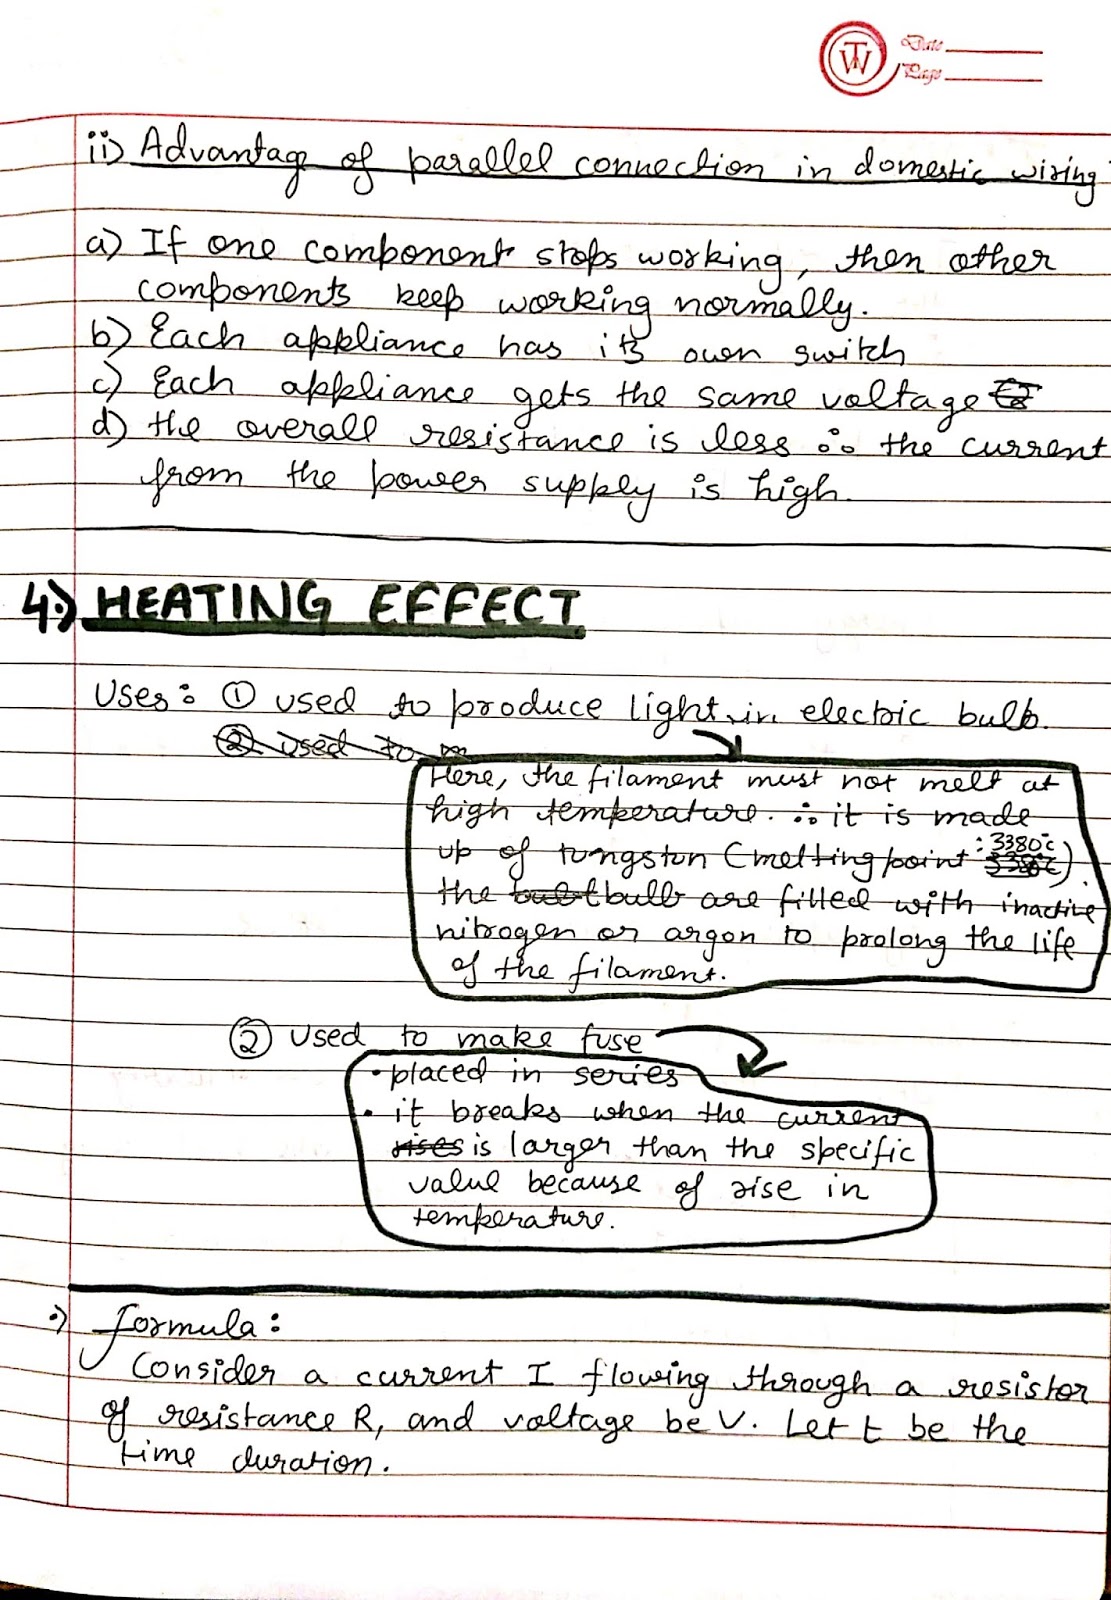 TW
Date
Page
ii) Advantage of parallel connection in domestic wiring
a) If one component stops working, then other
components keep working normally.
b) Each appliance has its own switch
c) Each appliance gets the same voltage
d) the overall resistance is less ∴ the current
from the power supply is high.
4.) HEATING EFFECT
Uses: ① used to produce light in electric bulb.
② used to m
Here, the filament must not melt at
high temperature. ∴ it is made
up of tungston (melting point : 3380°c).
the bulb are filled with inactive
nitrogen or argon to prolong the life
of the filament.
② used to make fuse
• placed in series
• it breaks when the current
rises is larger than the specific
value because of rise in
temperature.
•) formula:
Consider a current I flowing through a resistor
of resistance R, and voltage be V. Let t be the
time duration.